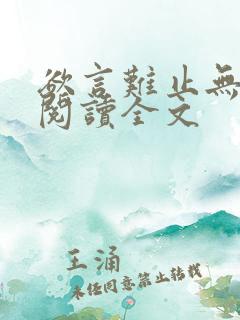 欲言難止無
閱讀全文
王涌
未经同意禁止转载